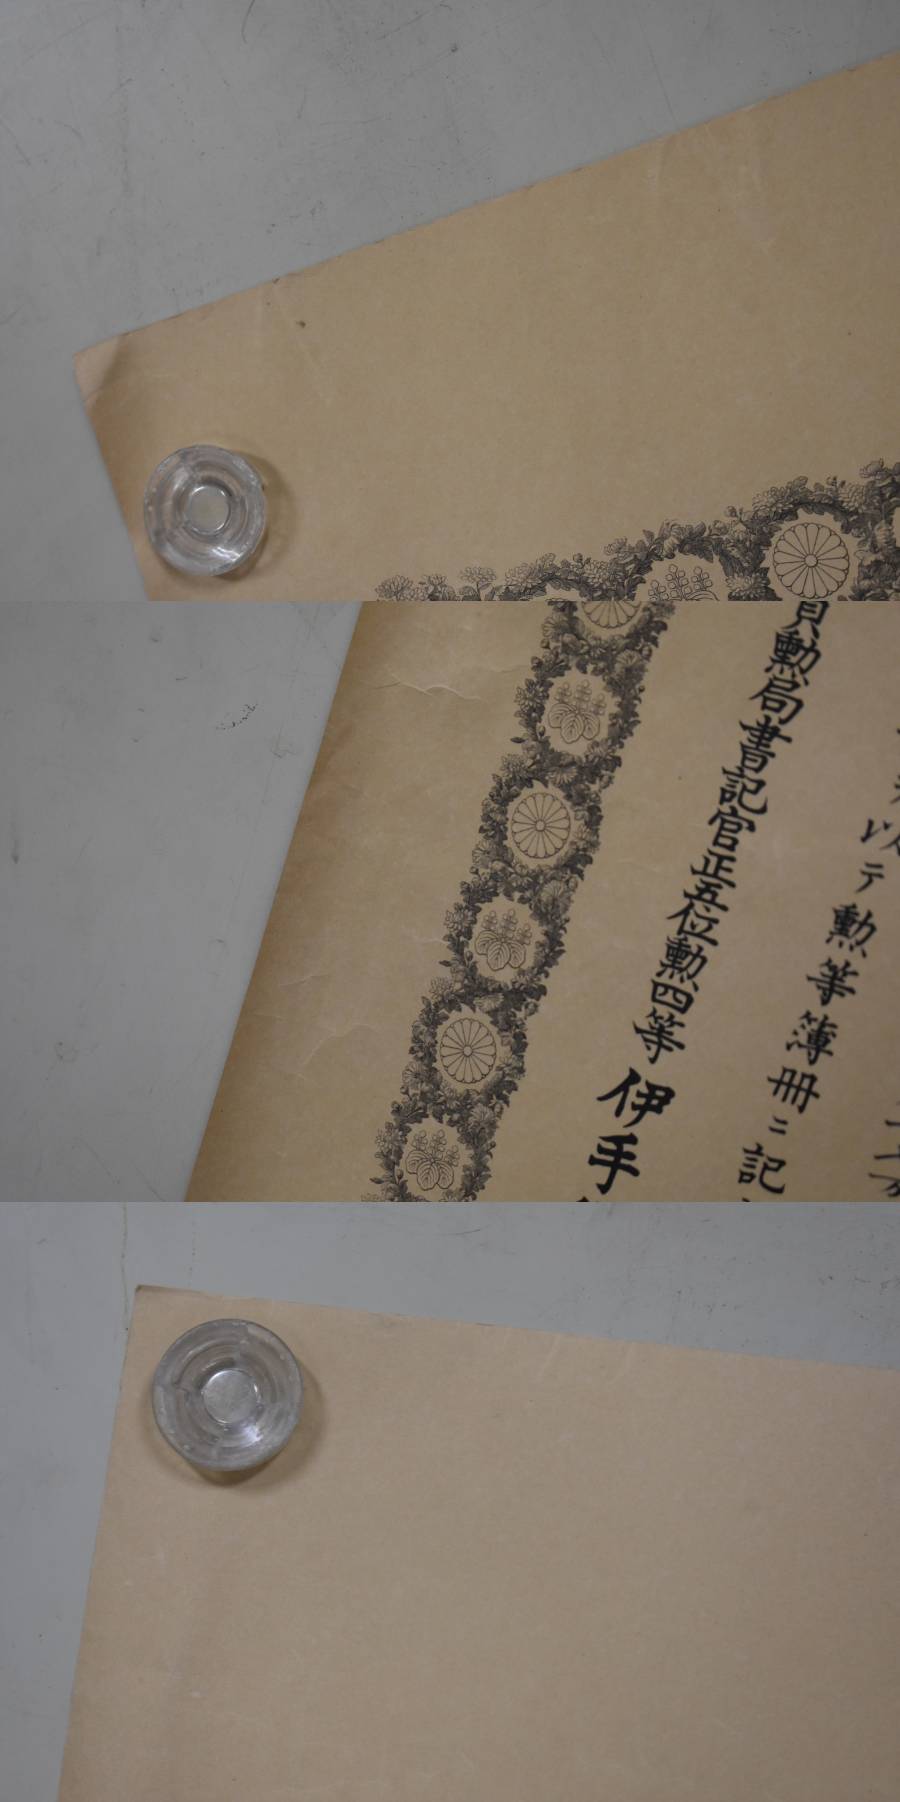 以テ勲等簿冊ニ記
賞勲局書記官正五位勲四等伊手